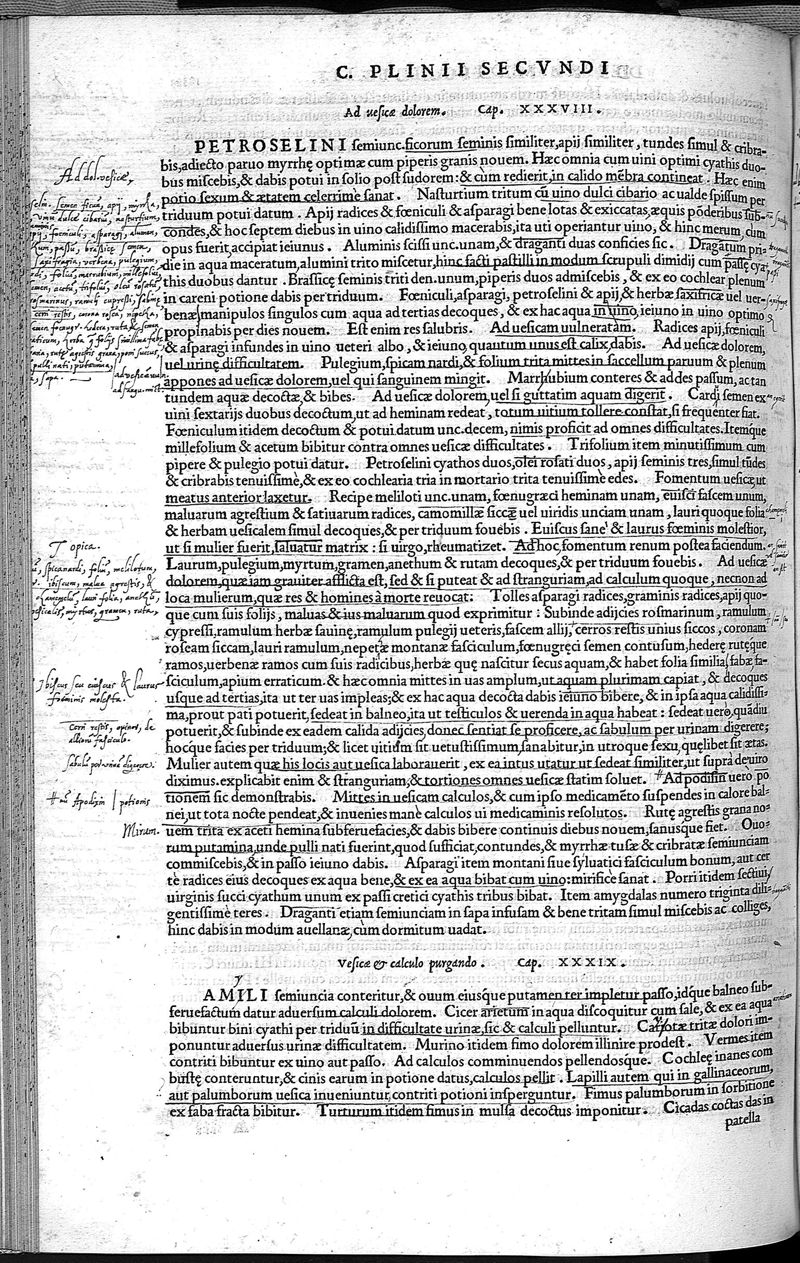 C. PLINII SECVNDI
Ad uesicæ dolorem. Cap. XXXVIII.
PETROSELINI semiunc. ficorum seminis similiter, apij similiter, tundes simul & cribra-
bis, adiecto paruo myrrhę optimæ cum piperis granis nouem. Hæc omnia cum uini optimi cyathis duo-
bus miscebis, & dabis potui in solio post sudorem: & cum redierit, in calido mēbra contineat. Hæc enim
potio sexum & ætatem celerrimè sanat. Nasturtium tritum cū uino dulci cibario ac ualde spissum per
triduum potui datum. Apij radices & fœniculi & asparagi bene lotas & exiccatas, æquis pōderibus sub-
condes, & hoc septem diebus in uino calidissimo macerabis, ita uti operiantur uino, & hinc merum, cum
opus fuerit, accipiat ieiunus. Aluminis scissi unc. unam, & draganti duas conficies sic. Dragatum pri-
die in aqua maceratum, alumini trito miscetur, hinc facti pastilli in modum scrupuli dimidij cum passę cya-
this duobus dantur. Brassicę seminis triti den. unum, piperis duos admiscebis, & ex eo cochlear plenum
in careni potione dabis per triduum. Fœniculi, asparagi, petroselini & apij, & herbæ saxifricæ uel uer-
benæ manipulos singulos cum aqua ad tertias decoques, & ex hac aqua in uino, ieiuno in uino optimo
propinabis per dies nouem. Est enim res salubris. Ad uesicam uulneratàm. Radices apij, fœniculi
& asparagi infundes in uino ueteri albo, & ieiuno, quantum unus est calix, dabis. Ad uesicæ dolorem,
uel urinę difficultatem. Pulegium, spicam nardi, & folium trita mittes in saccellum paruum & plenum
appones ad uesicæ dolorem, uel qui sanguinem mingit. Marrhubium conteres & addes passum, ac tan
tundem aquæ decoctæ, & bibes. Ad uesicæ dolorem, uel si guttatim aquam digerit. Cardi semen ex
uini sextarijs duobus decoctum, ut ad heminam redeat, totum uitium tollere constat, si frequenter fiat.
Fœniculum itidem decoctum & potui datum unc. decem, nimis proficit ad omnes difficultates. Itemque
millefolium & acetum bibitur contra omnes uesicæ difficultates. Trifolium item minutissimum cum
pipere & pulegio potui datur. Petroselini cyathos duos, olei rosati duos, apij seminis tres, simul tūdes
& cribrabis tenuissimè, & ex eo cochlearia tria in mortario trita tenuissimè edes. Fomentum uesicæ, ut
meatus anterior laxetur. Recipe meliloti unc. unam, fœnugræci heminam unam, euisci fascem unum,
maluarum agrestium & satiuarum radices, camomillæ siccæ uel uiridis unciam unam, lauri quoque folia
& herbam uesicalem simul decoques, & per triduum fouebis. Euiscus sanè & laurus fœminis molestior,
ut si mulier fuerit, saluatur matrix: si uirgo, rheumatizet. Ad hoc, fomentum renum postea faciendum.
Laurum, pulegium, myrtum, gramen, anethum & rutam decoques, & per triduum fouebis. Ad uesicæ
dolorem, quæ iam grauiter afflicta est, sed & si puteat & ad stranguriam, ad calculum quoque, necnon ad
loca mulierum, quæ res & homines à morte reuocat: Tolles asparagi radices, graminis radices, apij quo-
que cum suis folijs, maluas & ius maluarum quod exprimitur: Subinde adijcies rosmarinum, ramulum
cypressi, ramulum herbæ sauinę, ramulum pulegij ueteris, fascem allij, cerros restis unius siccos, coronam
roseam siccam, lauri ramulum, nepetæ montanæ fasciculum, fœnugręci semen contusum, hederę rutęque
ramos, uerbenæ ramos cum suis radicibus, herbæ quę nascitur secus aquam, & habet folia similia fabæ, fa-
sciculum, apium erraticum. & hæc omnia mittes in uas amplum, ut aquam plurimam capiat, & decoques
usque ad tertias, ita ut ter uas impleas; & ex hac aqua decocta dabis ieiuno bibere, & in ipsa aqua calidissi-
ma, prout pati potuerit, sedeat in balneo, ita ut testiculos & uerenda in aqua habeat: sedeat uerò, quādiu
potuerit, & subinde ex eadem calida adijcies, donec sentiat se proficere, ac sabulum per urinam digerere;
hocque facies per triduum; & licet uitium sit uetustissimum, sanabitur, in utroque sexu, quęlibet sit ætas.
Mulier autem quæ his locis aut uesica laborauerit, ex ea intus utatur ut sedeat similiter, ut suprà de uiro
diximus. explicabit enim & stranguriam; & tortiones omnes uesicæ statim soluet. Ad podisin uerò po
tionem sic demonstrabis. Mittes in uesicam calculos, & cum ipso medicamēto suspendes in calore bal-
nei, ut tota nocte pendeat, & inuenies manè calculos ui medicaminis resolutos. Rutę agrestis grana no-
uem trita ex aceti hemina subferuefacies, & dabis bibere continuis diebus nouem, sanusque fiet. Ouo-
rum putamina, unde pulli nati fuerint, quod sufficiat, contundes, & myrrhæ tusæ & cribratæ semiunciam
commiscebis, & in passo ieiuno dabis. Asparagi item montani siue syluatici fasciculum bonum, aut cer
tè radices eius decoques ex aqua bene, & ex ea aqua bibat cum uino: mirificè sanat. Porri itidem sectiui,
uirginis succi cyathum unum ex passi cretici cyathis tribus bibat. Item amygdalas numero triginta dili-
gentissimè teres. Draganti etiam semiunciam in sapa infusam & bene tritam simul miscebis ac colliges,
hinc dabis in modum auellanæ, cùm dormitum uadat.
Vesicæ & calculo purgando. Cap. XXXIX.
AMILI semiuncia conteritur, & ouum eiusque putamen ter impletur passo, idque balneo sub-
feruefactum datur aduersum calculi dolorem. Cicer arietum in aqua discoquitur cum sale, & ex ea aqua
bibuntur bini cyathi per triduū in difficultate urinæ, sic & calculi pelluntur. Caryotæ tritæ dolori im-
ponuntur aduersus urinæ difficultatem. Murino itidem fimo dolorem illinire prodest. Vermes item
contriti bibuntur ex uino aut passo. Ad calculos comminuendos pellendosque. Cochleę inanes com
bustę conteruntur, & cinis earum in potione datus, calculos pellit. Lapilli autem qui in gallinaceorum,
aut palumborum uesica inueniuntur, contriti potioni insperguntur. Fimus palumborum in sorbitione
ex faba fracta bibitur. Turturum itidem fimus in mulsa decoctus imponitur. Cicadas coctas das in
patella
Ad dol. vesicæ,
Topica.
Ibiscus seu euiscus & laurus
fœminis molesta.
Cerri restis, opinor, de
allioru fasciculo.
Miram.